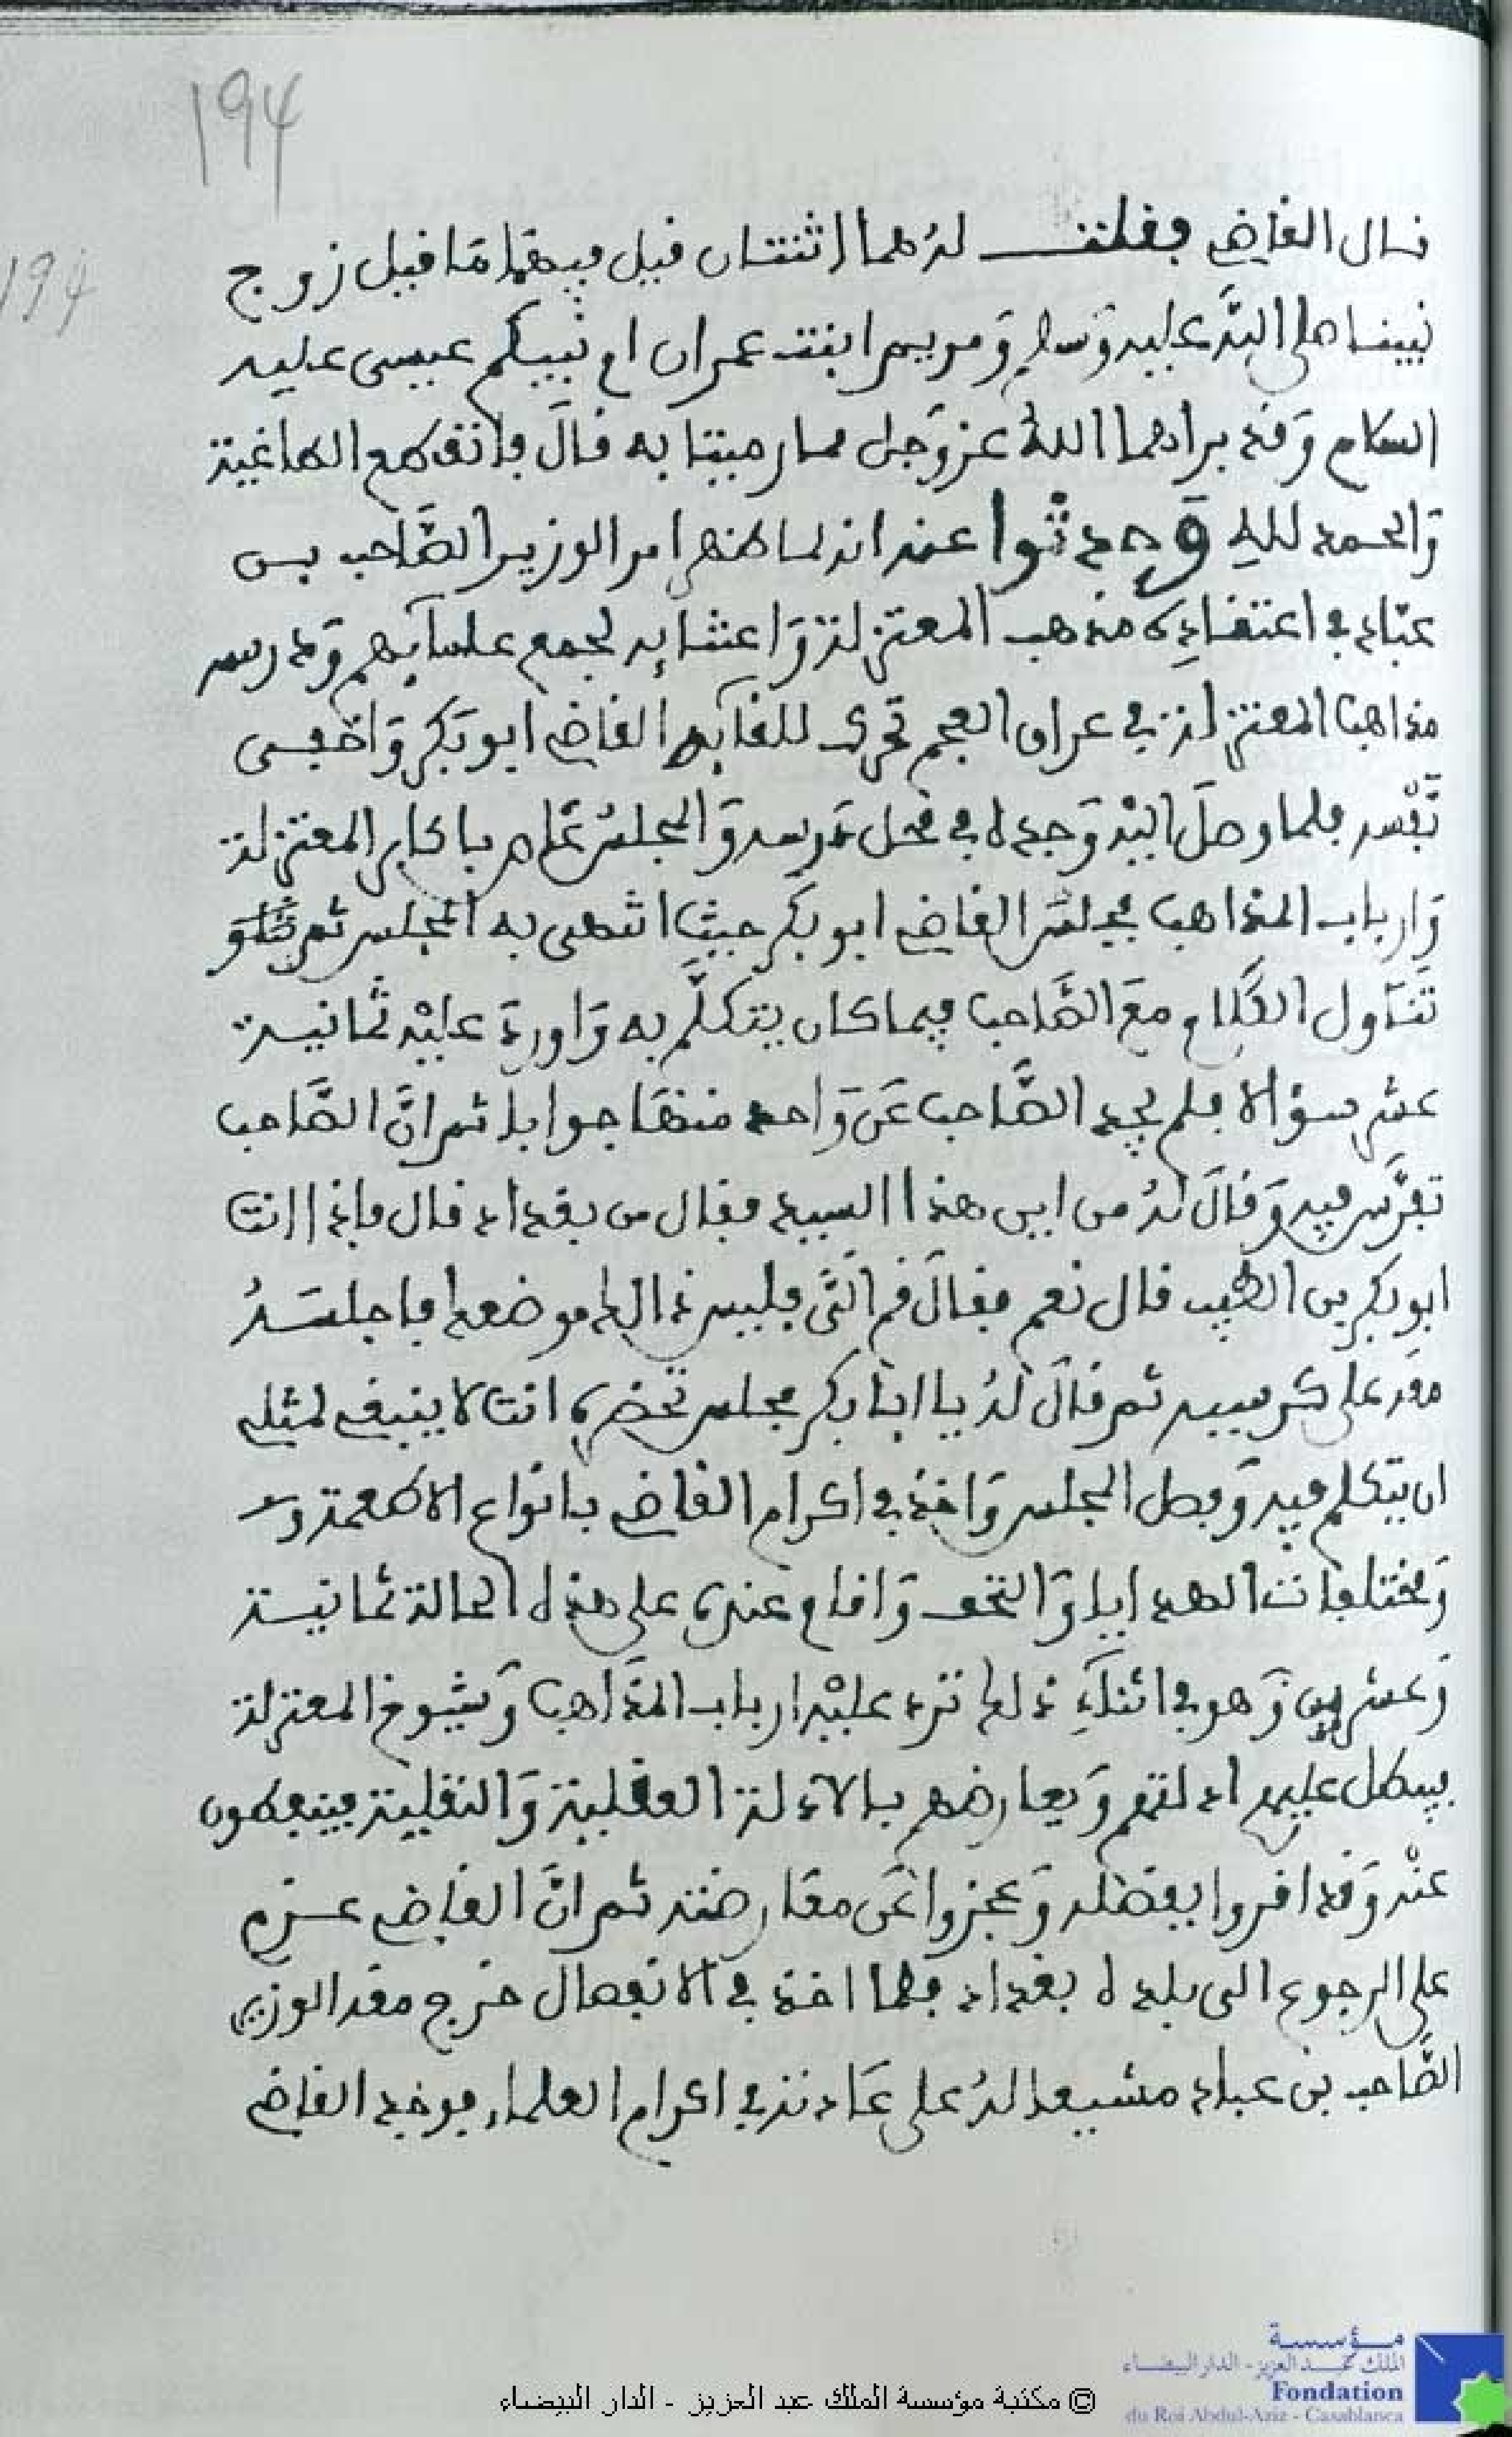 194
194
قال القاضي فقلت له هما اثنتان قيل فيهما ما قيل زوج
نبينا صلى الله عليه وسلم ومريم ابنت عمران ام نبيكم عيسى عليه
السلام وقد براهما الله عز وجل مما رميتا به قال فانقطع الطاغية
والحمد لله وحدثوا عنه انه لما ظهر امر الوزير الصاحب بن
عباد في اعتقاده مذهب المعتزلة واعتنايه لجمع علمآيهم ودرس
مذاهب المعتزلة في عراق العجم تحرك للقآيهم القاضي ابو بكر واخفى
نفسه فلما وصل اليه وجده في محل تدريسه والمجلس عام باكابر المعتزلة
وارباب المذاهب فجلس القاضي ابو بكر حيث انتهى به المجلس ثم
تناول الكلام مع الصاحب فيما كان يتكلم به واورد عليه ثمانية
عشر سؤالا فلم يجد الصاحب عن واحد منها جوابا ثم ان الصاحب
تفرس فيه وقال له من اين هذا السيد فقال من بغداد قال فإذا انت
ابو بكر بن الطيب قال نعم فقال قم الي فليس ذالك موضعك فاجلسه
معه على كرسيه ثم قال له يا ابا بكر مجلس تحضره انت لا ينبغي لمثلي
ان يتكلم فيه وفصل المجلس واخذ في اكرام القاضي بانواع الاطعمة و
ومختلفات الهدايا والتحف واقام عنده على هذه الحالة ثمانية
وعشرين وهو في اثنآء ذلك ترد عليه ارباب المذاهب وشيوخ المعتزلة
فيبطل عليهم ادلتهم ويعارضهم بالادلة العقلية والنقلية فينقطعون
عنه وقد اقروا بفضله وعجزوا عن معارضته ثم ان القاضي عزم
على الرجوع الى بلده بغداد فلما اخذ في الانفصال خرج معه الوزير
الصاحب بن عباد مشيعا له على عادته في اكرام العلماء فوجد القاضي
© مكتبة مؤسسة الملك عبد العزيز - الدار البيضاء
مؤسسة
الملك عبد العزيز - الدار البيضاء
Fondation
du Roi Abdul-Aziz - Casablanca